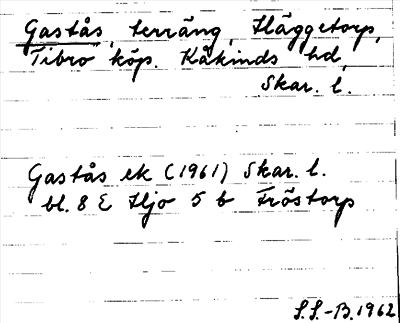 Gastås, terräng, Häggetorp,
Tibro köp. Kåkinds hd,
Skar. l.
Gastås ek (1961) Skar. l.
bl. 8 E Hjo 5 b Fröstorp
S.S.-B. 1962